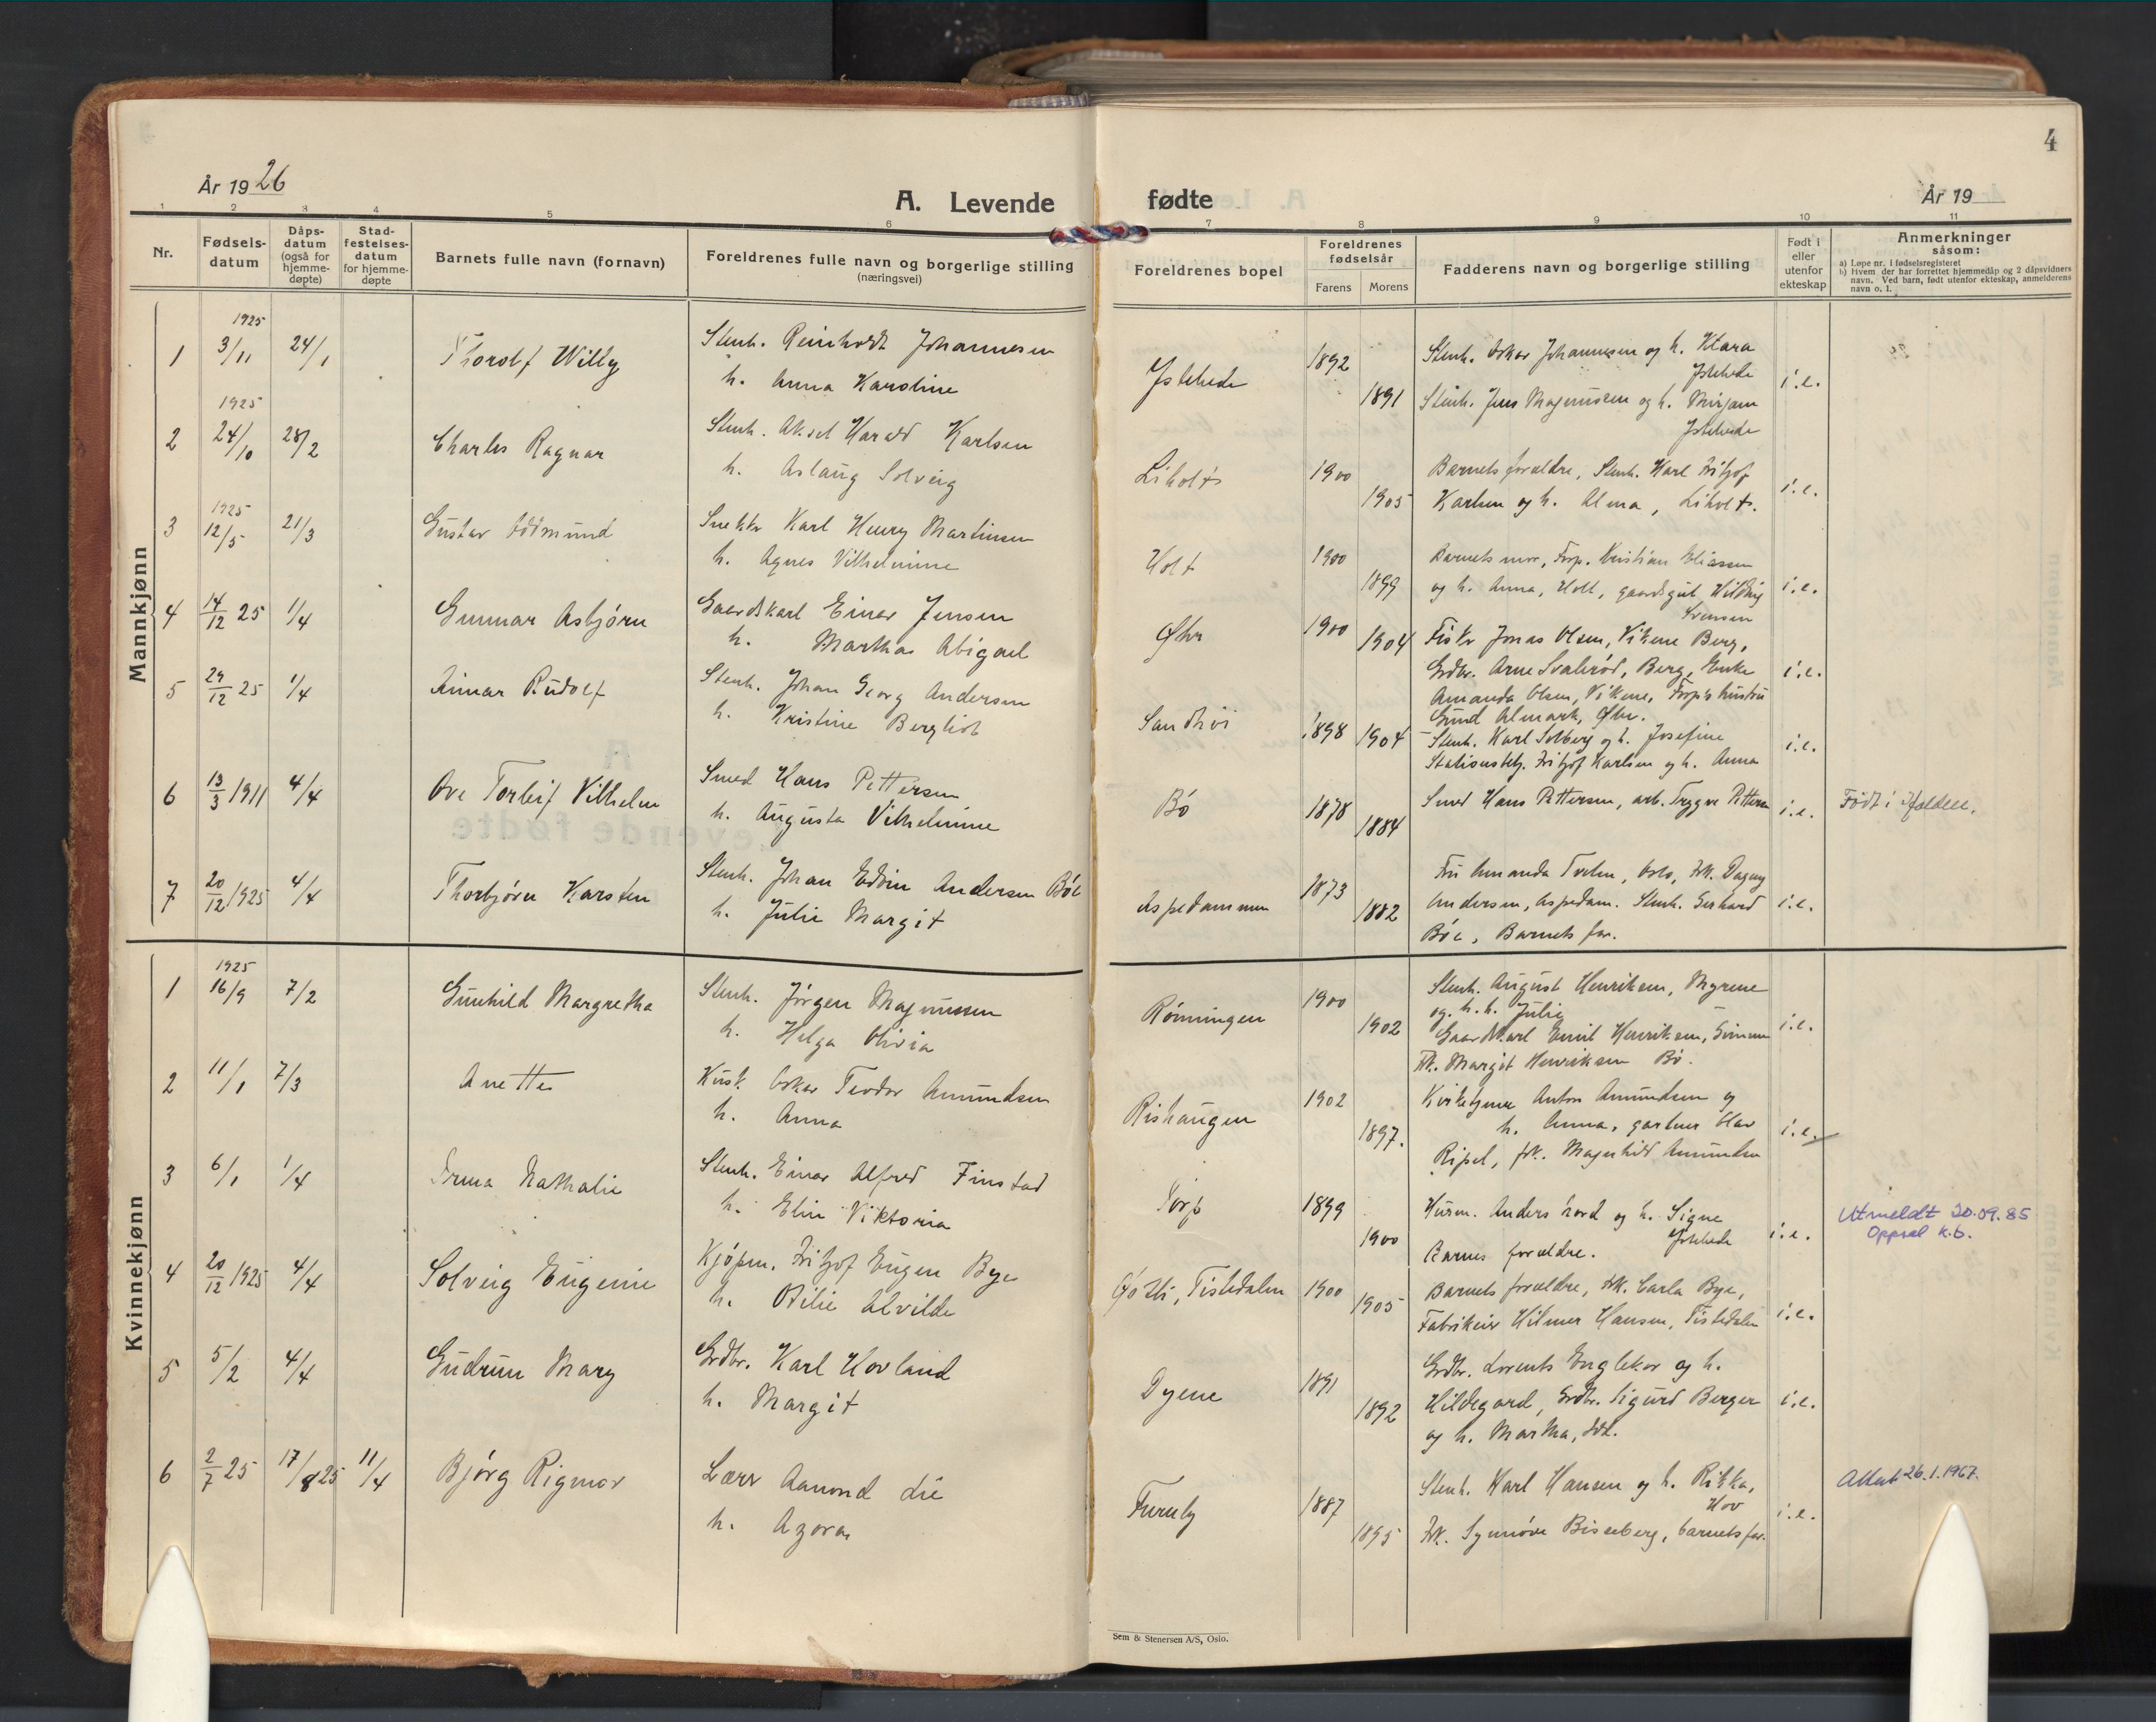 4
År 1926
A. Levende
fødte
År 19
1 2 3 4 5 6 7 8 9 10 11
Nr.
Fødsels-
datum
Dåps-
datum
(også for
hjemme-
døpte)
Stad-
festelses-
datum
for hjemme-
døpte
Barnets fulle navn (fornavn)
Foreldrenes fulle navn og borgerlige stilling
(næringsvei)
Foreldrenes bopel
Foreldrenes
fødselsår
Farens Morens
Fadderens navn og borgerlige stilling
Født i
eller
utenfor
ekteskap
Anmerkninger
såsom:
a) Løpe nr. i fødselsregisteret
b) Hvem der har forrettet hjemmedåp og 2 dåpsvidners
navn. Ved barn, født utenfor ekteskap, anmelderens
navn o. l.
Mannkjønn
1 1925 3/11 24/1 Thorolf Willy
Stenh. Reinholdt Johannesen
h. Anna Karoline
Istehede 1892 1891
Stenh. Oskar Johannesen og h. Klara
Istehede
Stenh. Jens Magnussen og h. Mirjam
Istehede
i.e.
2 1925 24/10 28/2 Charles Ragnar
Stenh. Aksel Harald Karlsen
h. Aslaug Solveig
Liholt 1900 1905
Barnets forældre, Stenh. Karl Fritjof
Karlsen og h. Alma, Liholt.
i.e.
3 1925 12/5 21/3 Gustav Oddmund
Snekker Karl Henry Martinsen
h. Agnes Vilhelmine
Holt 1900 1899
Barnets mor, Forp. Kristian Eliassen
og h. Anna, Holt, gaardsgut Hilding
Svensen
i.e.
4 14/12 25 1/4 Gunnar Asbjørn
Gaardskarl Einar Jensen
h. Martha Abigael
Øhr 1900 1904
Fisker Jonas Olsen, Vikene Berg,
Grdbr. Arne Svalerød, Berg, Enke
Amanda Olsen, Vikene, Forp's hustru
Gund Almark, Øhr.
i.e.
5 29/12 25 1/4 Aimar Rudolf
Stenh. Johan Georg Andersen
h. Kristine Bergliot
Sandhøi 1898 1904
Stenh. Karl Solberg og h. Josefine
Stationsbetj. Fritjof Karlsen og h. Anna
i.e.
6 13/3 1911 4/4 Ove Torleif Vilhelm
Smed Hans Pettersen
h. Augusta Vilhelmine
Bø 1878 1884
Smed Hans Pettersen, arb. Trygve Pettersen
i.e.
Født i Halden.
7 20/12 1925 4/4 Thorbjørn Karsten
Stenh. Johan Edvin Andersen Bøe
h. Julie Margit
Aspedammen 1873 1882
Fru Amanda Tvelen, Oslo, Frk. Dagny
Andersen, Aspedam. Stenh. Gerhard
Bøe, Barnets far.
i.e.
Kvinnekjønn
1 1925 16/9 7/2 Gunhild Margretha
Stenh. Jørgen Magnussen
h. Helga Olivia
Rønningen 1900 1902
Stenh. August Henriksen, Myrene
og h. h. Julie
Gaardskarl Emil Henriksen,
Frk. Margit Henriksen Bø.
i.e.
2 11/1 7/3 Anette
Kusk Oskar Teodor Amundsen
h. Anna
Rishaugen 1902 1897.
Kirketjener Anton Amundsen og
h. Anna, gartner Olav
Ripel, frk. Magnhild Amundsen
i.e.
3 6/1 1/4 Irma Nathalie
Stenh. Einar Alfred Finstad
h. Elin Viktoria
Torp 1899 1900
Murm. Anders Nord og h. Signe
Istehede
Barnes forældre.
i.e.
Utmeldt 20.09.85
Oppsal k.b.
4 20/12 1925 4/4 Solveig Eugenie
Kjøpm. Fritjof Eugen Bye
h. Otilie Alvilde
Tistedalen 1900 1905
Barnets forældre, Frk. Carla Bye,
Fabrikeier Hilmer Hansen, Tistedalen
i.e.
5 5/2 4/4 Gudrun Mary
Grdbr. Karl Hovland
h. Margit
Dyene 1891 1892
Grdbr. Lorents Englekor og h.
Hildegard, Grdbr. Sigurd Berger
og h. Martha, Idd.
i.e.
6 2/7 25 17/8 25 11/4 Bjørg Rigmor
Lærer Aamond Lie
h. Azora
Furuly 1887 1895
Stenh. Karl Hansen og h. Rikka,
Hov
Frk. Synnøve Bisseberg, barnets far.
i.e.
Attest 26.1.1967.
Sem & Stenersen A/S, Oslo.